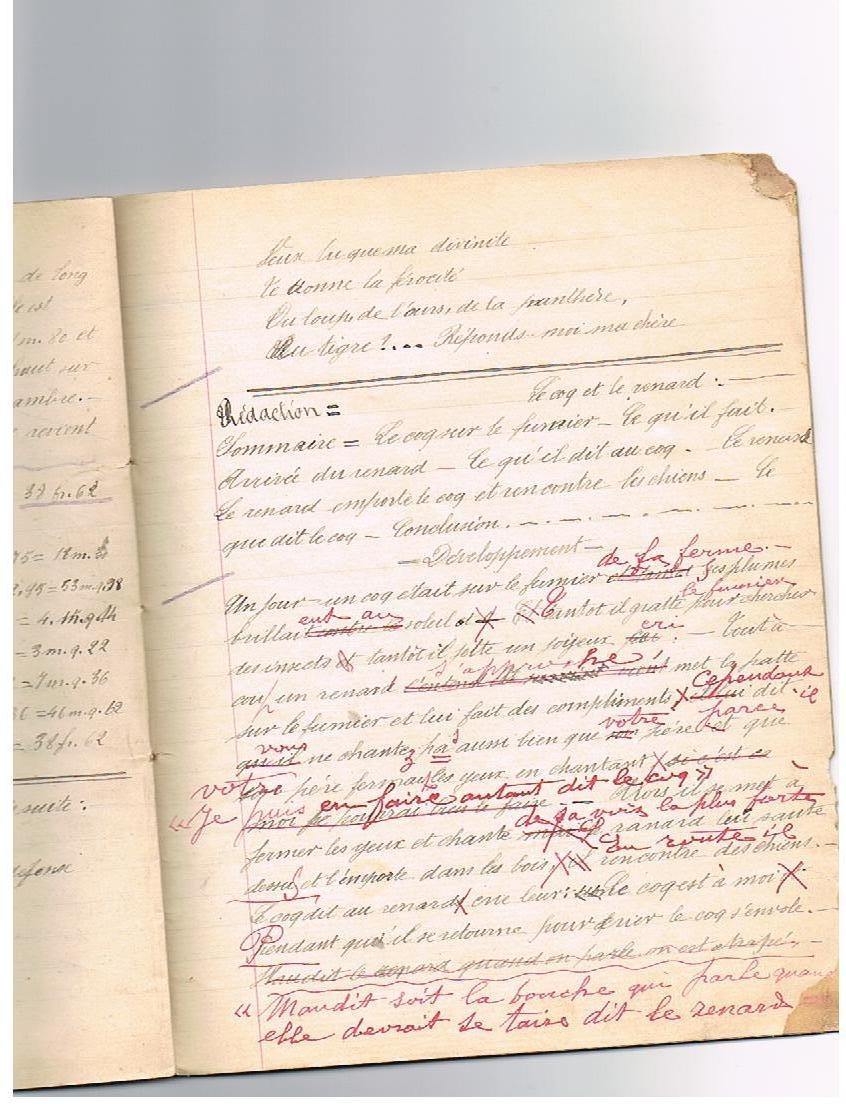 de long
le est
1 m. 80 et
haut sur
ambre. -
revient
38 fr. 62
75 = 18 m.
2,95 = 53 m. q. 38
= 3 m. q. 22
= 7 m. q. 36
36 = 46 m. q. 62
= 38 fr. 62
suite :
défense
que ma divinité
te donne la férocité
Du loup, de l'ours, de la panthère,
Du tigre ?... Réponds-moi ma chère
Rédaction =
Le coq et le renard : -
Sommaire = Le coq sur le fumier - Ce qu'il fait. -
Arrivée du renard - Ce qu'il dit au coq. - Le renard
Le renard emporte le coq et rencontre les chiens - Ce
que dit le coq - Conclusion. -
- Développement -
de la ferme. -
Un jour un coq était sur le fumier ses plumes
eut au le fumier
brillait contre le soleil et tantôt il gratte pour chercher
cri
des insects tantôt il jette un soyeux : - Tout à
s'approche
coup un renard met la patte
Cependant
sur le fumier et lui fait des compliments lui dit
vous votre parce il
qu'il ne chantez pas aussi bien que père et que
votre
père fermait les yeux en chantant si c'est ce
« Je puis en faire autant dit le coq »
moi je Alors il se met à
de sa voix la plus forte
fermer les yeux et chante renard lui saute
En route il
dessus et l'emporte dans les bois, il rencontre des chiens. -
Le coq dit au renard crie leur : Le coq est à moi.
Pendant qu'il se retourne pour crier le coq s'envole. -
Maudit le renard quand on parle on est atrapé. -
« Maudit soit la bouche qui parle quand
elle devrait se taire dit le renard =